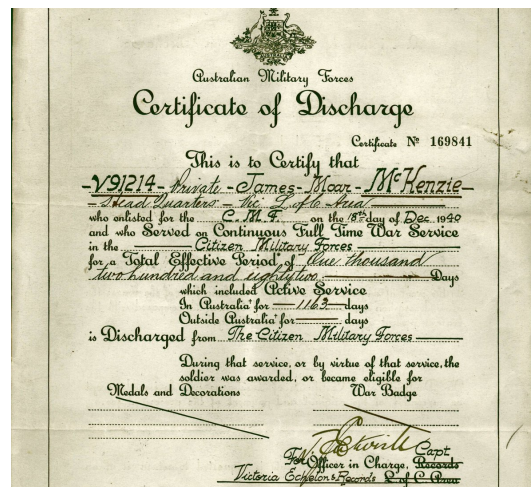 Australian Military Forces
Certificate of Discharge
Certificate Nº 169841
This is to Certify that
-V91214- Private -James-Moar-McKenzie-
-Head Quarters - Vic L of C Area
who enlisted for the C.M.F. on the 18th day of Dec 1940
and who Served on Continuous Full Time War Service
in the Citizen Military Forces
for a Total Effective Period of One thousand
two hundred and eighty two Days
which included Active Service
In Australia for 1163 days
Outside Australia for days
is Discharged from The Citizen Military Forces
During that service, or by virtue of that service, the
soldier was awarded, or became eligible for
Medals and Decorations War Badge
Capt
For Officer in Charge, Records
Victoria Echelon & Records L of C Area